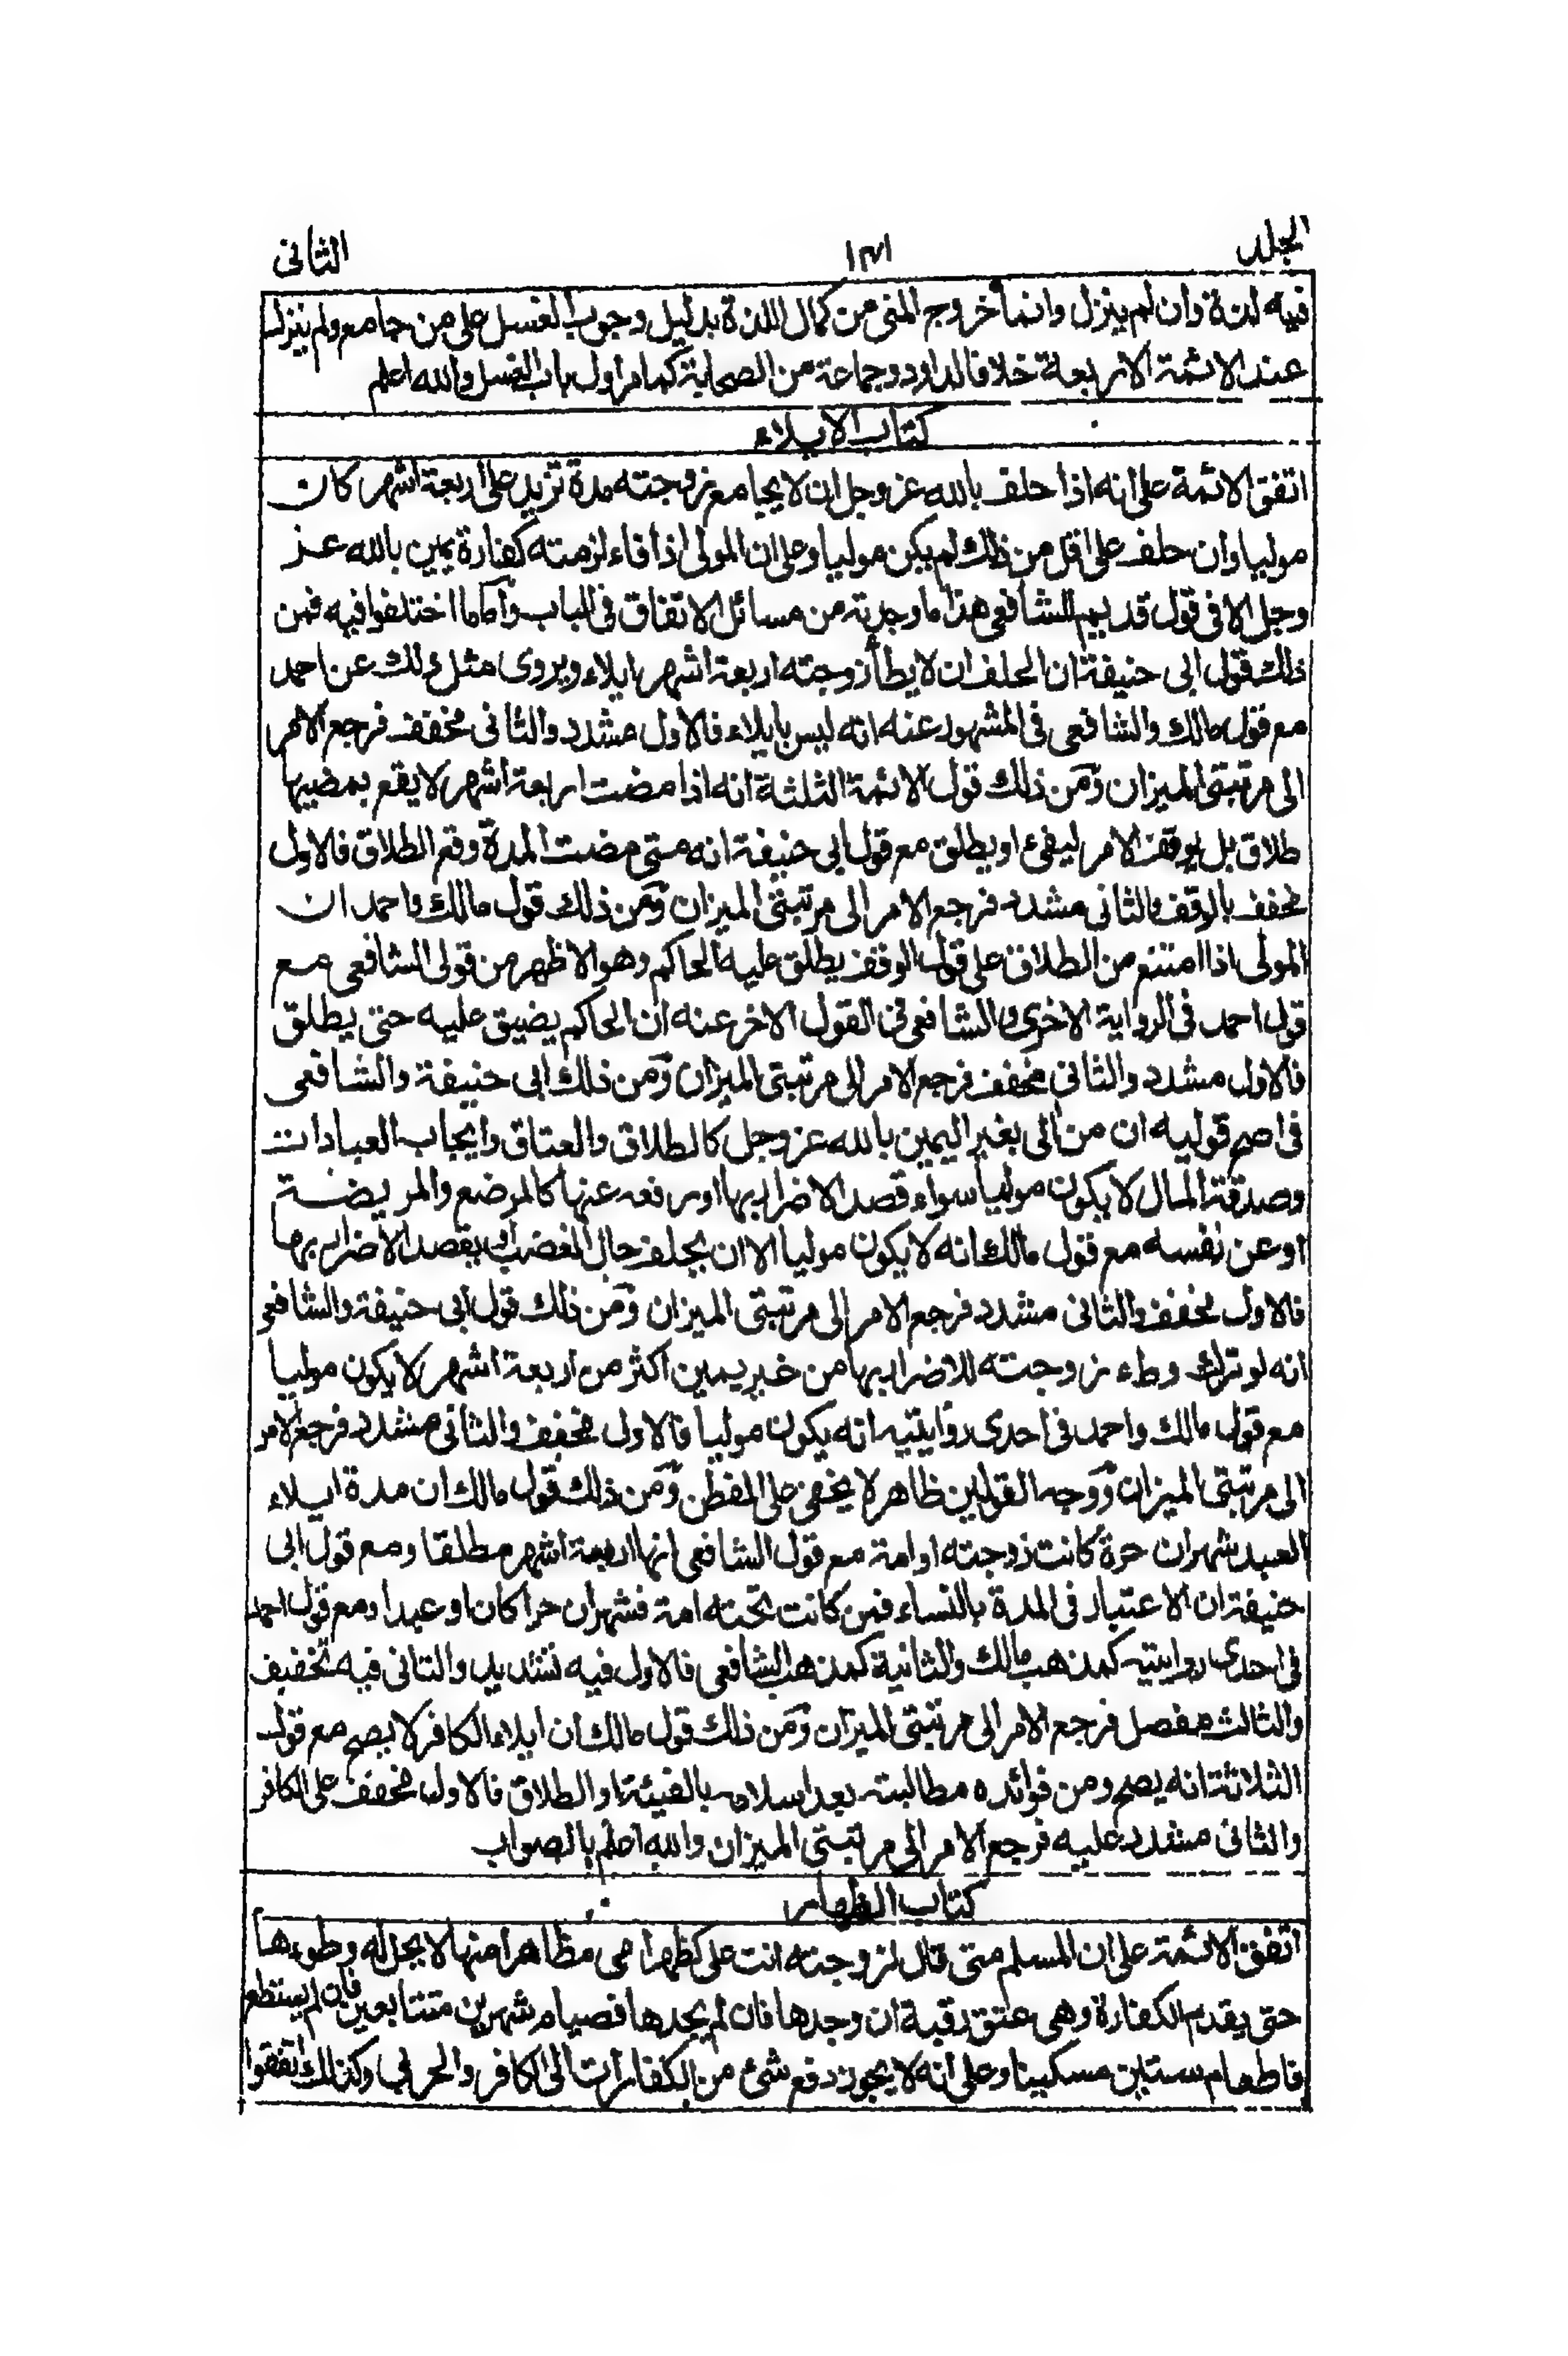 الجلد ١٣١ الثانى
فيه لذة وان لم ينزل وانما خروج المنى من كمال اللذة بدليل وجوب الغسل على من جامع ولم ينزل
عند الائمة الاربعة خلافا لداود وجماعة من الصحابة كما مر اول باب الغسل والله اعلم
كتاب الايلاء
اتفق الائمة على انه اذا حلف بالله عز وجل ان لا يجامع زوجته مدة تزيد على اربعة اشهر كان
موليا وان حلف على اقل من ذلك لم يكن موليا وعلى ان المولى اذا فاء لزمته كفارة يمين بالله عز
وجل الا فى قول قديم للشافعى هذا ما وجدته من مسائل الاتفاق فى الباب واما ما اختلفوا فيه فمن
ذلك قول ابى حنيفة ان الحلف ان لا يطأ زوجته اربعة اشهر ايلاء ويروى مثل ذلك عن احمد
مع قول مالك والشافعى فى المشهور عنه انه ليس بايلاء فالاول مشدد والثانى مخفف فرجع الامر
الى مرتبتى الميزان ومن ذلك قول الائمة الثلثة انه اذا مضت اربعة اشهر لا يقع بمضيها
طلاق بل يوقف الامر ليفئ او يطلق مع قول ابى حنيفة انه متى مضت المدة وقع الطلاق فالاول
مخفف بالوقف والثانى مشدد فرجع الامر الى مرتبتى الميزان ومن ذلك قول مالك واحمد ان
المولى اذا امتنع من الطلاق على قول الوقف يطلق عليه الحاكم وهو الاظهر من قولى الشافعى مع
قول احمد فى الرواية الاخرى والشافعى فى القول الاخر عنه ان الحاكم يضيق عليه حتى يطلق
فالاول مشدد والثانى مخفف فرجع الامر الى مرتبتى الميزان ومن ذلك ابى حنيفة والشافعى
فى اصح قوليه ان من الى بغير اليمين بالله عز وجل كالطلاق والعتاق وايجاب العبادات
وصدقة المال لا يكون موليا سواء قصد الاضرار بها او رفعه عنها كالمرضع والمريضة
او عن نفسه مع قول مالك انه لا يكون موليا الا ان يحلف حال الغضب او يقصد الاضرار بها
فالاول مخفف والثانى مشدد فرجع الامر الى مرتبتى الميزان ومن ذلك قول ابى حنيفة والشافعى
انه لو ترك وطء زوجته للاضرار بها من غير يمين اكثر من اربعة اشهر لا يكون موليا
مع قول مالك واحمد فى احدى روايتيه انه يكون موليا فالاول مخفف والثانى مشدد فرجع الامر
الى مرتبتى الميزان ووجه القولين ظاهر لا يخفى على المفطن ومن ذلك قول مالك ان مدة ايلاء
العبد شهران حرة كانت زوجته او امة مع قول الشافعى انها اربعة اشهر مطلقا ومع قول ابى
حنيفة ان الاعتبار فى المدة بالنساء فمن كانت تحته امة فشهران حرا كان او عبدا ومع قول احمد
فى احدى روايتيه كمذهب مالك والثانية كمذهب الشافعى فالاول فيه تشديد والثانى فيه تخفيف
والثالث مفصل فرجع الامر الى مرتبتى الميزان ومن ذلك قول مالك ان ايلاء الكافر لا يصح مع قول
الثلاثة انه يصح ومن فوائده مطالبته بعد اسلامه بالفيئة او الطلاق فالاول مخفف على الكافر
والثانى مشدد عليه فرجع الامر الى مرتبتى الميزان والله اعلم بالصواب
كتاب الظهار
اتفق الائمة على ان المسلم متى قال لزوجته انت على كظهر امى مظاهرا منها لا يحل له وطوءها
حتى يقدم الكفارة وهى عتق رقبة ان وجدها فان لم يجدها فصيام شهرين متتابعين فان لم يستطع
فاطعام ستين مسكينا وعلى انه لا يجوز دفع شئ من الكفارات الى الكافر والحربى وكذلك اتفقوا